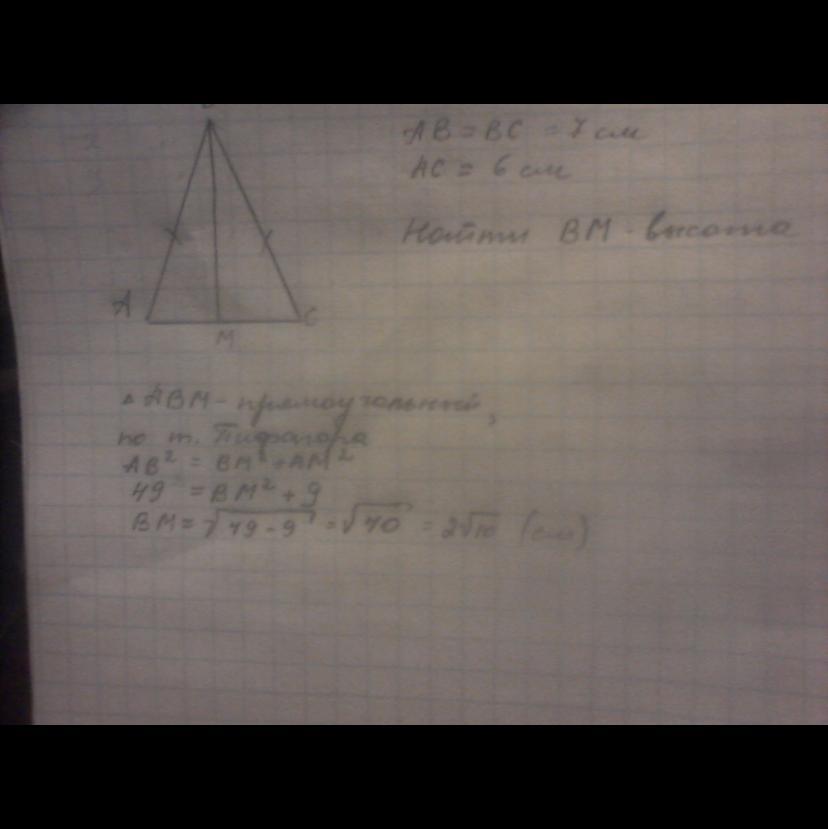 AB = BC = 7 см
AC = 6 см
Найти BM - высота
A
C
M
△ ABM - прямоугольный,
по т. Пифагора
AB² = BM² + AM²
49 = BM² + 9
BM = √49 - 9 = √40 = 2√10 (см)